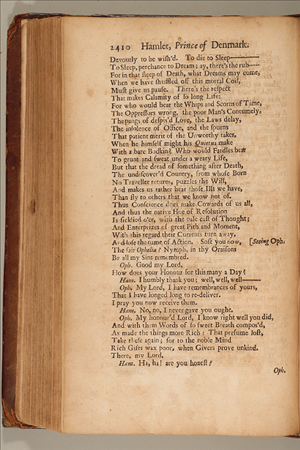 2410 Hamlet, Prince of Denmark.
Devoutly to be wish'd. To die to Sleep—
To Sleep, perchance to Dream; ay, there's the rub—
For in that sleep of Death, what Dreams may come,
When we have shuffled off this mortal Coil,
Must give us pause. There's the respect
That makes Calamity of so long Life:
For who would bear the Whips and Scorns of Time,
The Oppressors wrong, the poor Man's Contumely,
The pangs of despis'd Love, the Laws delay,
The insolence of Office, and the spurns
That patient merit of the Unworthy takes,
When he himself might his Quietus make
With a bare Bodkin? Who would Fardles bear
To grunt and sweat under a weary Life,
But that the dread of something after Death,
The undiscover'd Country, from whose Born
No Traveller returns, puzzles the Will,
And makes us rather bear those Ills we have,
Than fly to others that we know not of.
Thus Conscience does make Cowards of us all,
And thus the native Hue of Resolution
Is sicklied o'er, with the pale cast of Thought;
And Enterprizes of great Pith and Moment,
With this regard their Currents turn away,
And lose the name of Action. Soft you now, [Seeing Oph.
The fair Ophelia? Nymph, in thy Orisons
Be all my Sins remembred.
Oph. Good my Lord,
How does your Honour for this many a Day?
Ham. I humbly thank you; well, well, well—
Oph. My Lord, I have remembrances of yours,
That I have longed long to re-deliver.
I pray you now receive them.
Ham. No, no, I never gave you ought.
Oph. My honour'd Lord, I know right well you did,
And with them Words of so sweet Breath compos'd,
As made the things more Rich: That perfume lost,
Take these again; for to the noble Mind
Rich Gifts wax poor, when Givers prove unkind.
There, my Lord.
Ham. Ha, ha! are you honest?
Oph.